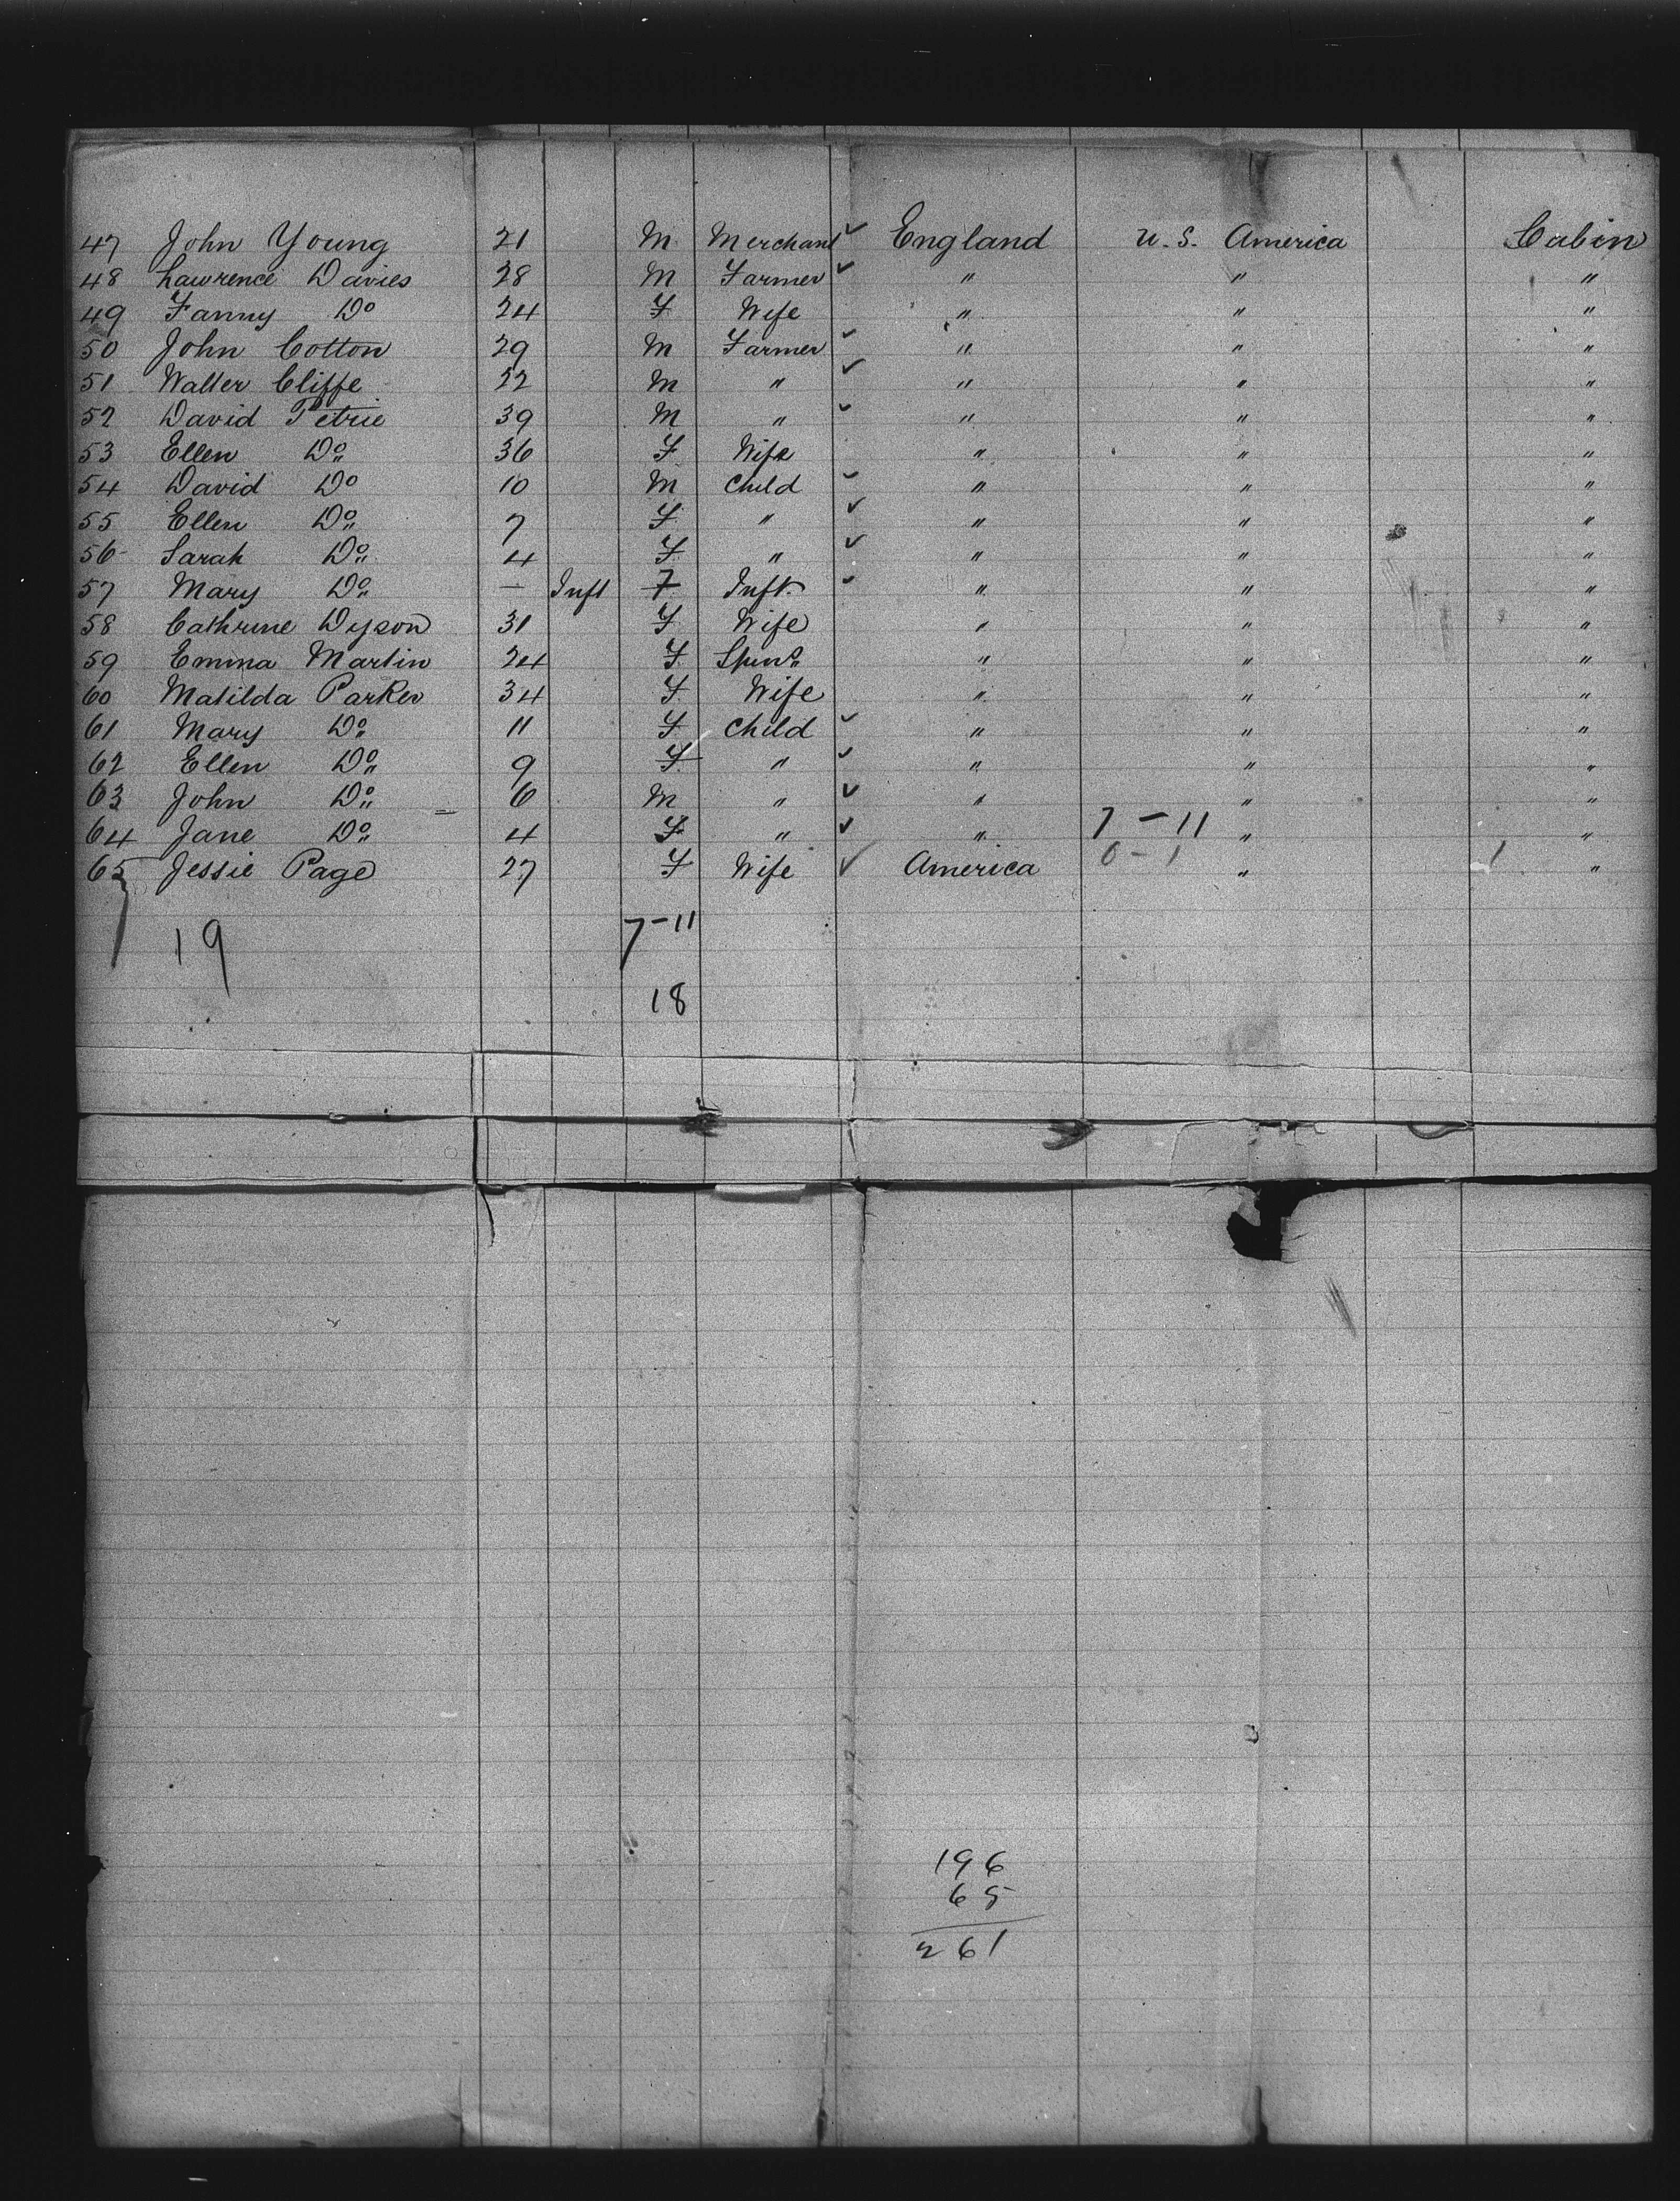 47 John Young 21 M Merchant ✓ England U.S. America Cabin
48 Lawrence Davies 28 M Farmer ✓ " " "
49 Fanny Do 24 F Wife " " "
50 John Cotton 29 M Farmer ✓ " " "
51 Walter Cliffe 22 M " ✓ " " "
52 David Petrie 39 M " ✓ " " "
53 Ellen Do 36 F Wife " " "
54 David Do 10 M Child ✓ " " "
55 Ellen Do 7 F " ✓ " " "
56 Sarah Do 4 F " ✓ " " "
57 Mary Do — Inft F Inft. ✓ " " "
58 Cathrine Dyson 31 F Wife " " "
59 Emma Martin 24 F Spinr " " "
60 Matilda Parker 34 F Wife " " "
61 Mary Do 11 F Child ✓ " " "
62 Ellen Do 9 F " ✓ " " "
63 John Do 6 M " ✓ " " "
64 Jane Do 4 F " ✓ " 7-11 " "
65 Jessie Page 27 F Wife ✓ America 0-1 " 1 "
19 7-11
18
196
65
261